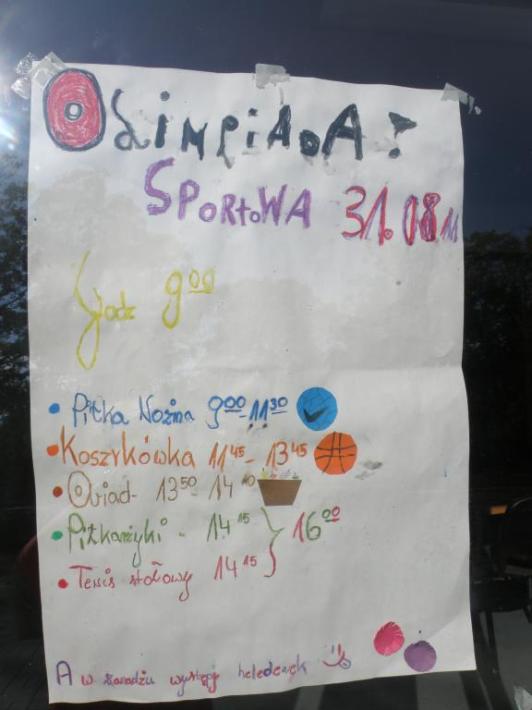 OLIMPIADA!
SPORtoWA 31.08 11
Godz 9 00
• Piłka Nożna 9 00 - 11 30
• Koszykówka 11 45 - 13 45
• Obiad - 13 50 14 10
• Piłkarzyki - 14 15 } 16 00
• Tenis stołowy 14 15
A w garażu występ